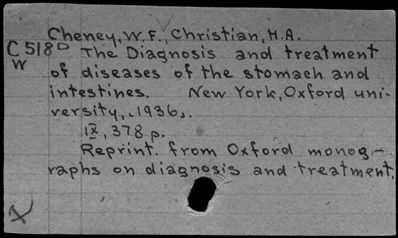 Cheney, W. F., Christian, H. A.
C 518 D The Diagnosis and treatment
W of diseases of the stomach and
intestines. New York, Oxford uni-
versity, c1936.
ix, 378 p.
Reprint. from Oxford monog-
raphs on diagnosis and treatment.